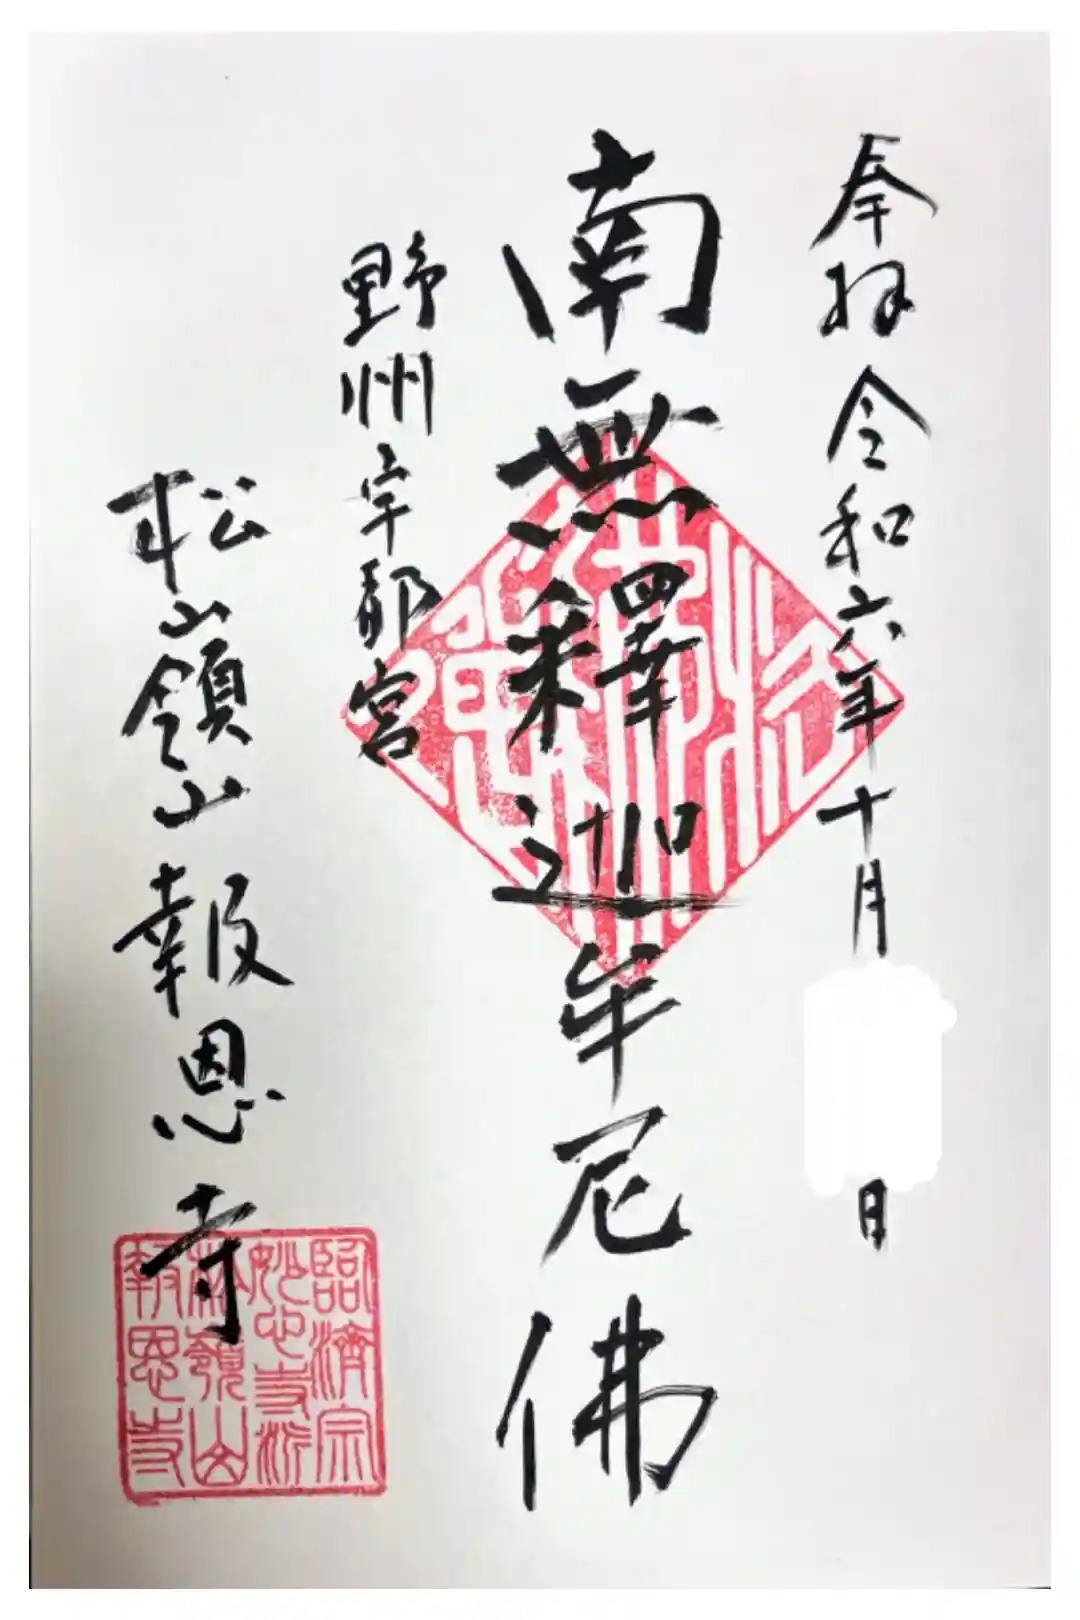 奉拝 令和六年十月 日
南無釋迦牟尼佛
野州宇都宮
松嶺山報恩寺
臨濟宗
妙心寺派
松嶺山
報恩寺